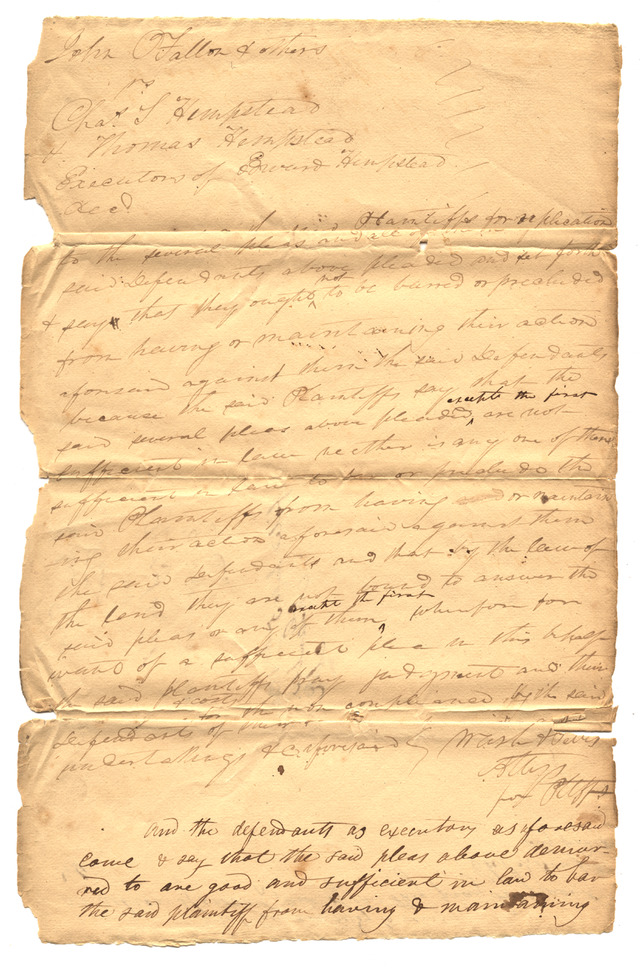 John O'Fallon & others
vs
Chas S Hempstead
& Thomas Hempstead
Executors of Edward Hempstead
decd
said Plaintiffs for replication
to the several pleas
said Defendants above pleaded and set forth
& says that they ought not to be barred or precluded
from having or maintaining their action
aforesaid against them the said Defendants
because the said Plaintiffs say that the
said several pleas above pleaded except the first are not
sufficient in law neither is any one of them
sufficient in law to bar or preclude the
said Plaintiffs from having or maintain
ing their action aforesaid against them
the said defendants and that by the law of
the land they are not bound to answer the
said pleas or any of them except the first wherefore for
want of a sufficient plea in this behalf
the said plaintiffs pray judgment and their
costs for the non compliance by the said
Defendants of their
undertakings & aforesaid
Attys
for Pltffs
And the defendants as executors as aforesaid
come & say that the said pleas above demur-
red to are good and sufficient in law to bar
the said plaintiff from having & maintaining